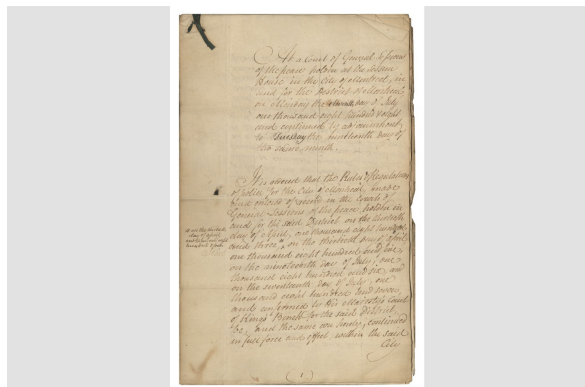 At a Court of General Sessions
of the peace holden at the Session
House in the City of Montreal, in
and for the District of Montreal,
on Monday the day of July
one thousand eight hundred & eight
and continued by adjournment
to Tuesday the nineteenth day of
the same month.
It is ordered that the Rules & Regulations
of police for the City of Montreal, made
and entered of record in the Court of
General Sessions of the peace, holden in
and for the said District on the thirtieth
day of April, one thousand eight hundred
and three, on the thirtieth April
one thousand eight hundred and
on the nineteenth day of July, one
thousand eight hundred and six, and
on the seventeenth day of July, one
thousand eight hundred and seven,
and confirmed by His Majesty's Court
of Kings Bench for the said District,
be, and the same are hereby, continued
in full force and effect, within the said
City
day of April
hundred
(1)